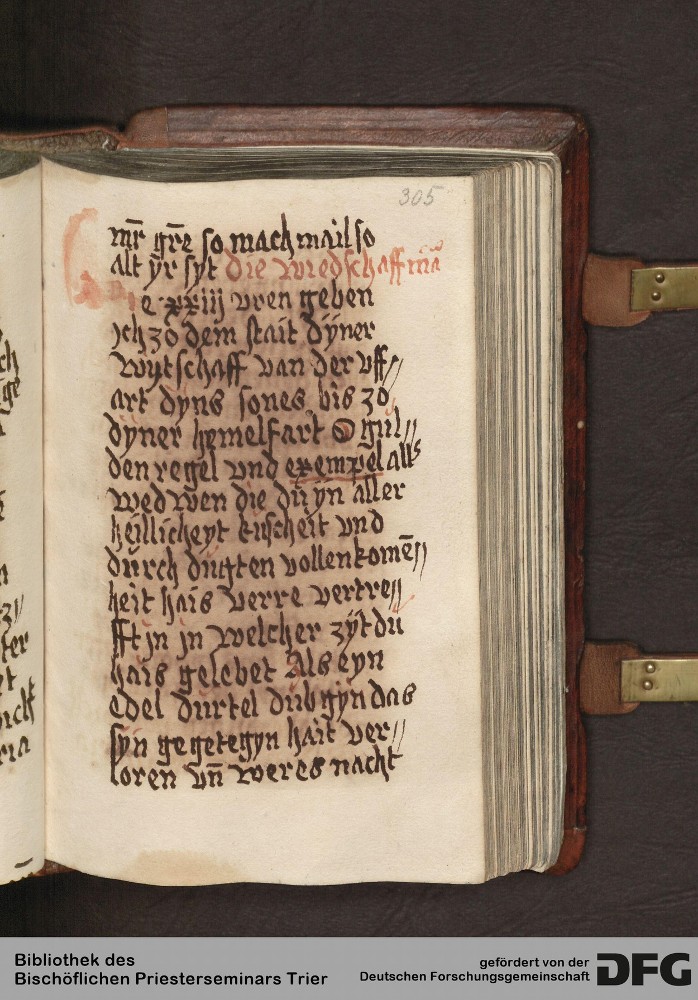 305
mr̄ gr̄e so mach mail so
alt ÿr syt die wiedschaff mā
e xxiij vren geben
jch zo dem stait dÿner
wÿtschaff van der vff//
art dÿns sones bis zo
dÿner hemelfart O gul//
den regel vnd exempel alls
wedwen die du yn aller
heillicheyt kuscheit vnd
durch dugten vollenkomē//
heit hais verre vertre//
fft jn jn welcher zÿt du
hais gelebet Als eyn
edel durtel dubgyn das
syn gegetegyn hait ver//
loren vn̄ weres nacht
Bibliothek des
Bischöflichen Priesterseminars Trier
gefördert von der
Deutschen Forschungsgemeinschaft
DFG